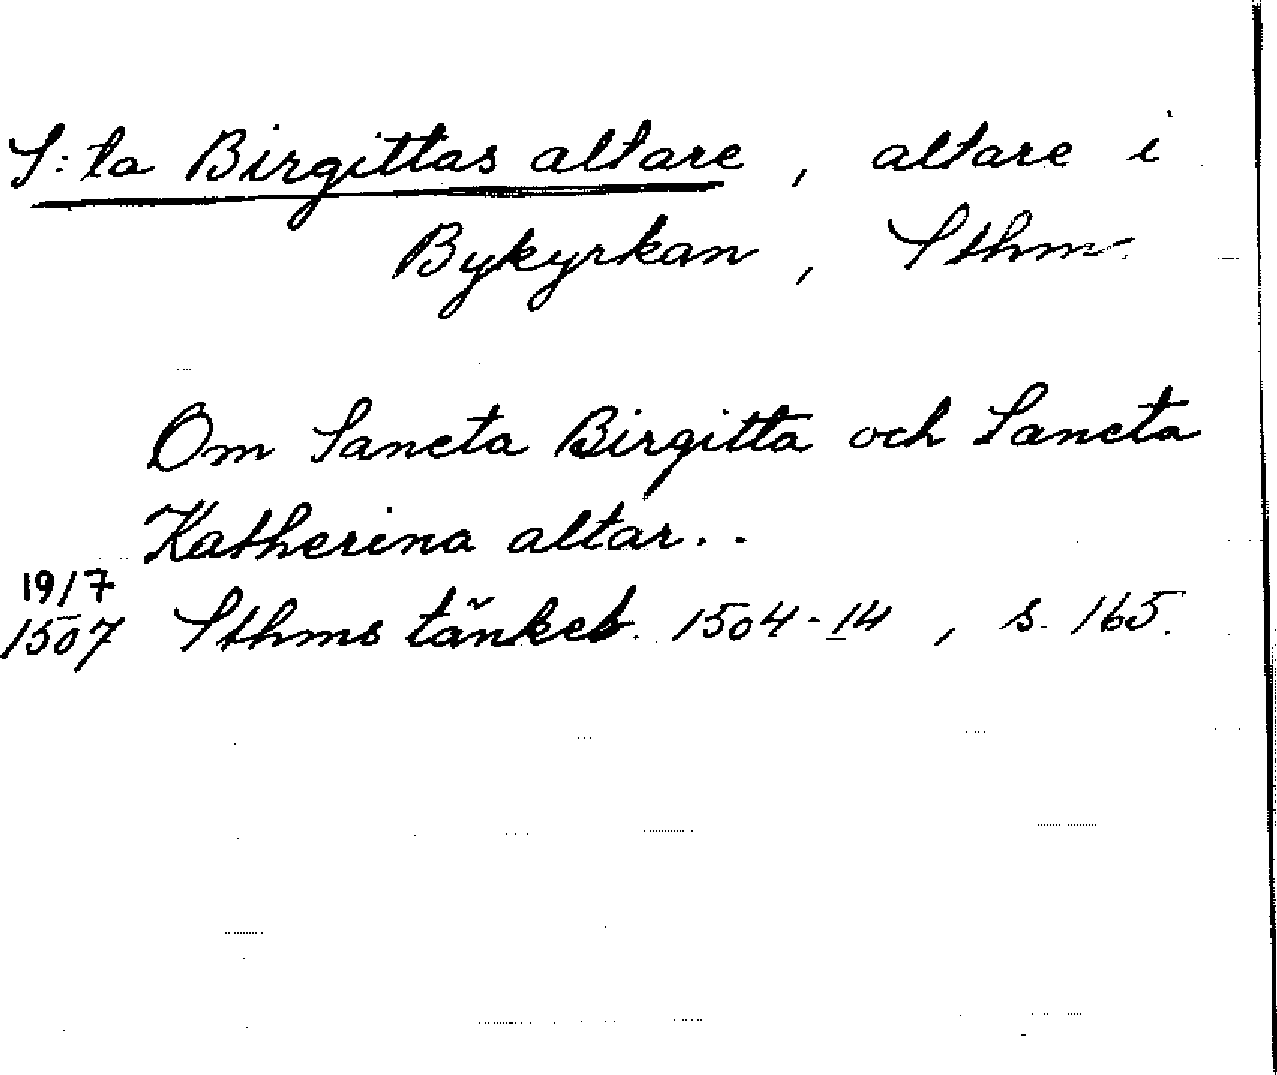 S:ta Birgittas altare, altare i
Bykyrkan, Sthm.
Om Sancta Birgitta och Sancta
Katherina altar..
19/7
1507 Sthms tänkeb. 1504-14, s. 165.